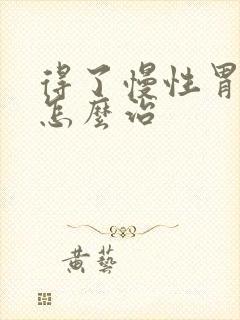 得了慢性胃
怎麼治
黄藝